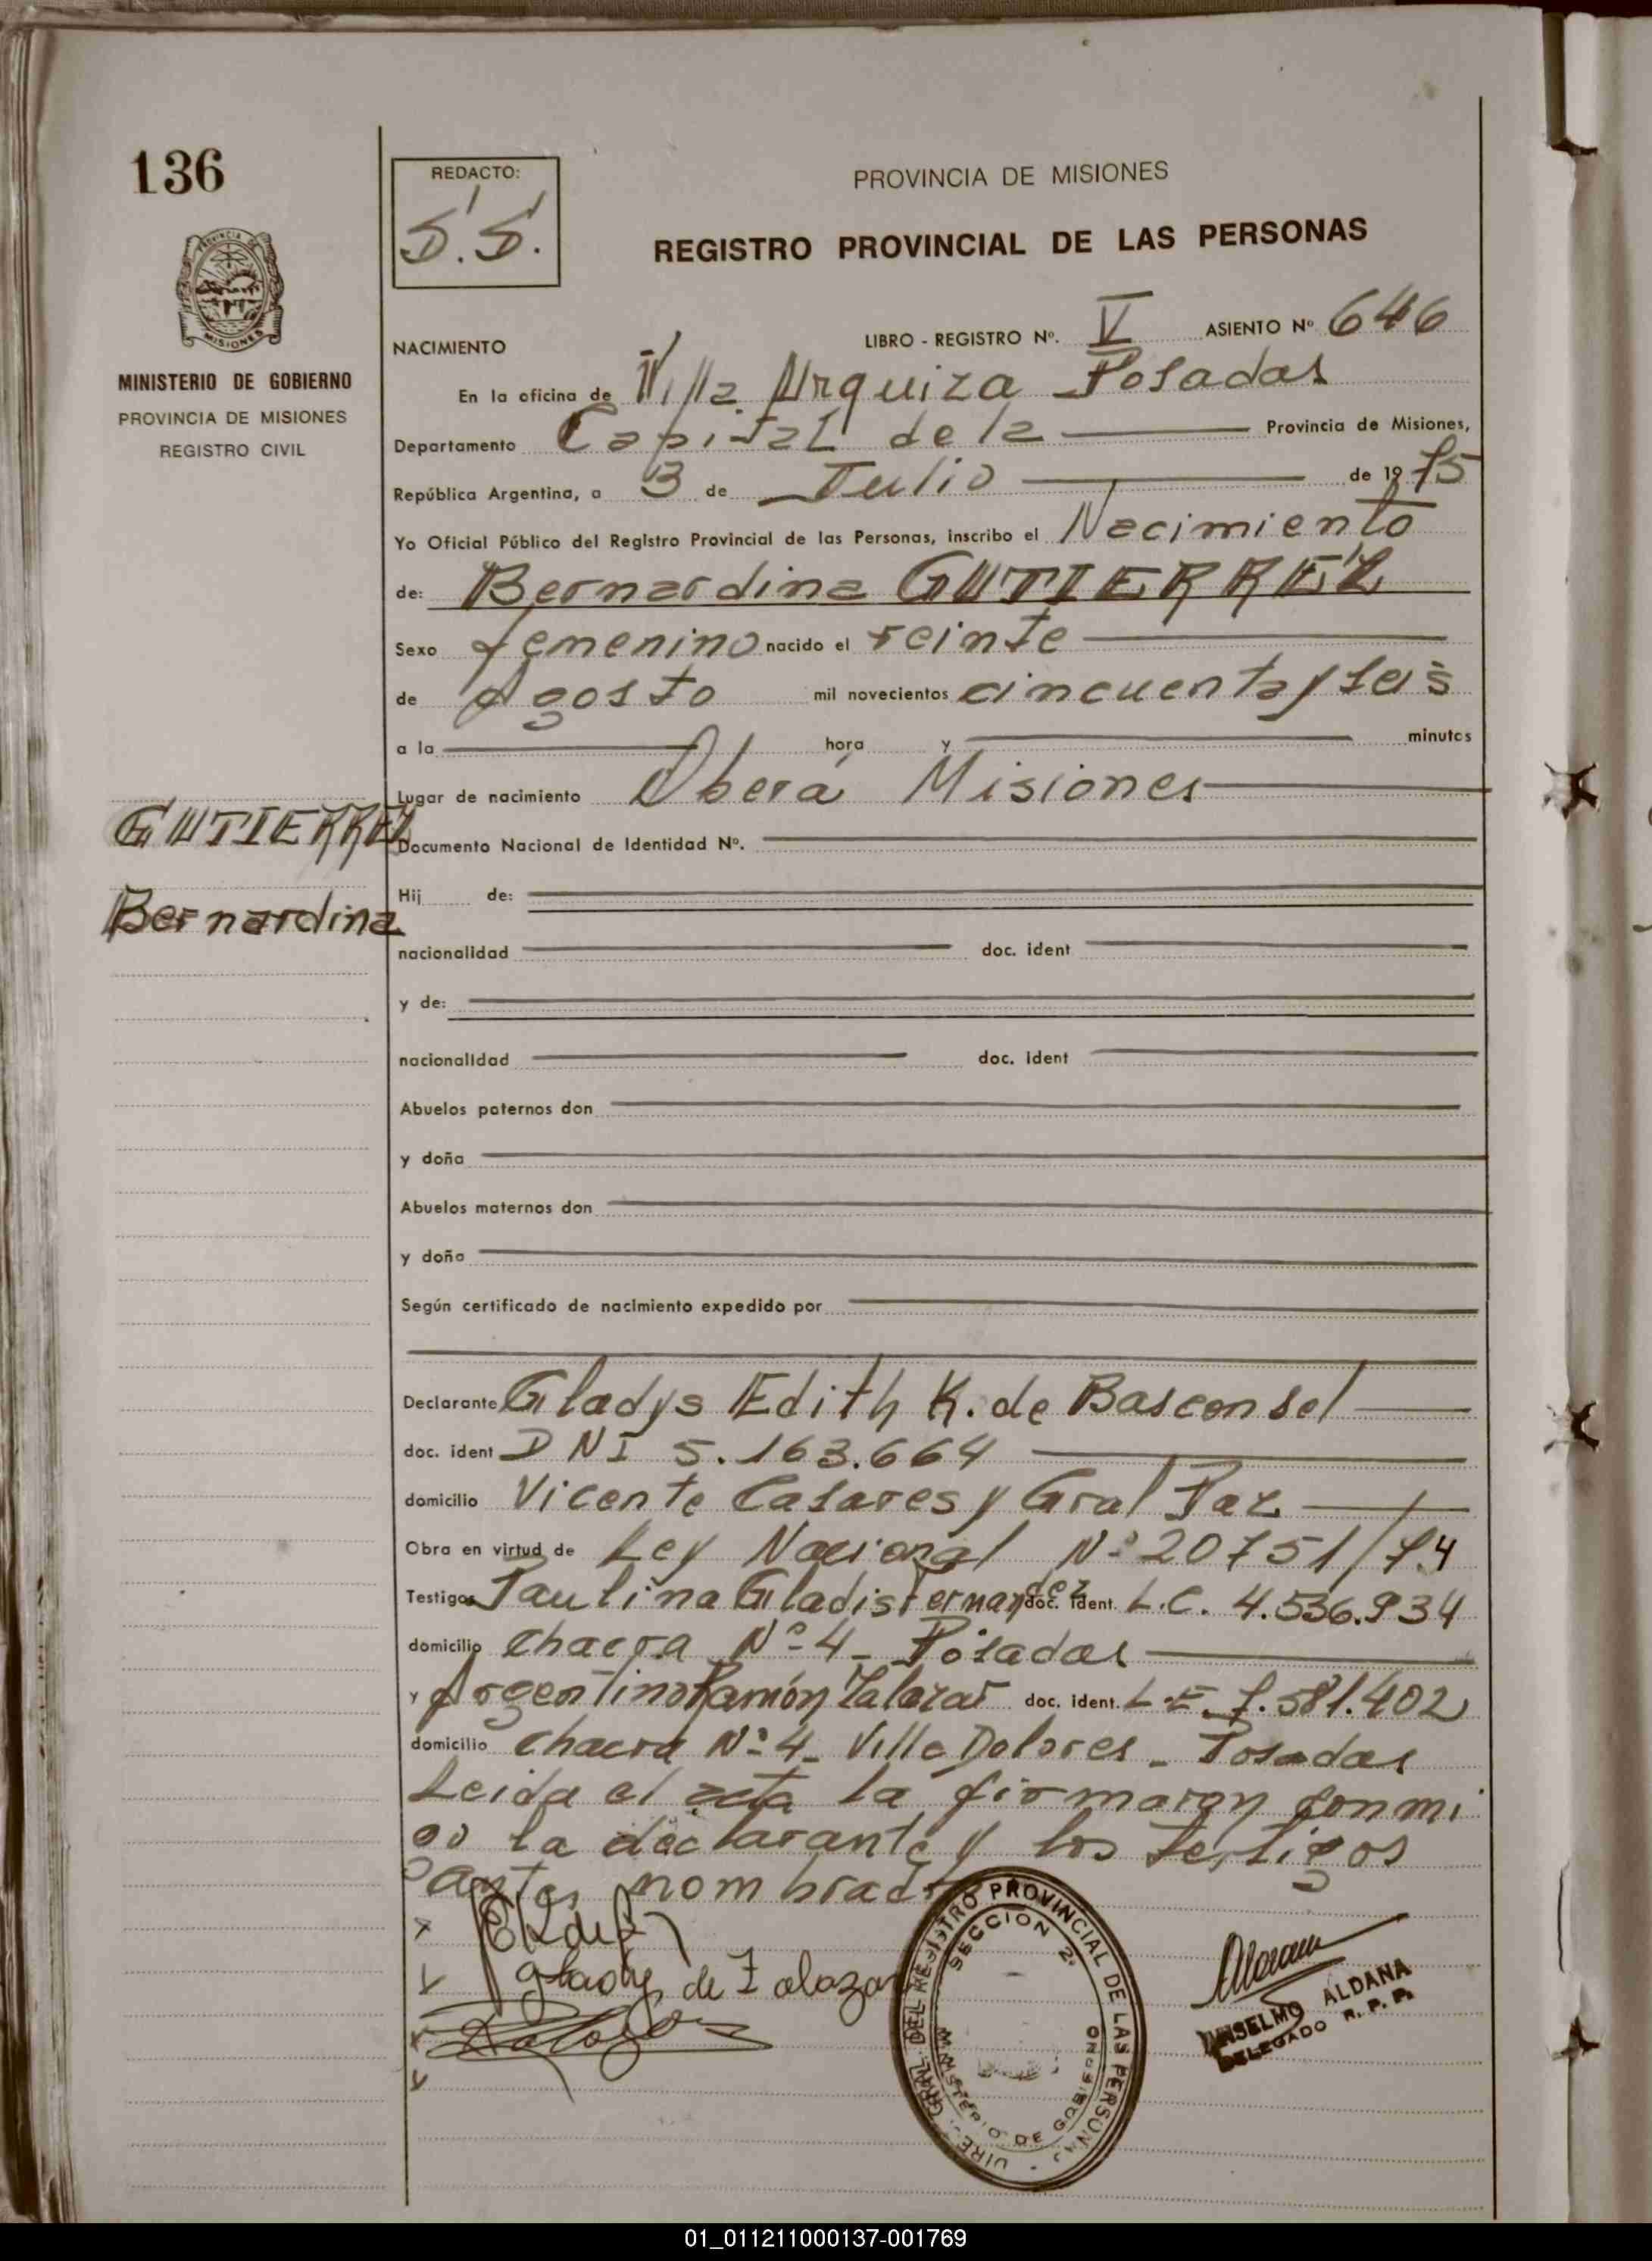 136
REDACTO:
S.S.
PROVINCIA DE MISIONES
REGISTRO PROVINCIAL DE LAS PERSONAS
PROVINCIA DE
MISIONES
MINISTERIO DE GOBIERNO
PROVINCIA DE MISIONES
REGISTRO CIVIL
NACIMIENTO LIBRO - REGISTRO Nº. V ASIENTO Nº 646
En la oficina de Villa Urquiza Posadas
Departamento Capital de la Provincia de Misiones,
República Argentina, a 3 de Julio de 19 75
Yo Oficial Público del Registro Provincial de las Personas, inscribo el Nacimiento
de: Bernardina GUTIERREZ
Sexo femenino nacido el veinte
de Agosto mil novecientos cincuenta y seis
a la hora y minutos
Lugar de nacimiento Oberá Misiones
GUTIERREZ
Documento Nacional de Identidad Nº.
Hij de:
Bernardina
nacionalidad doc. ident
y de:
nacionalidad doc. ident
Abuelos paternos don
y doña
Abuelos maternos don
y doña
Según certificado de nacimiento expedido por
Declarante Gladys Edith K. de Basconsel
doc. ident DNI 5.163.664
domicilio Vicente Casares y Gral Paz
Obra en virtud de Ley Nacional Nº 20751/74
Testigos Paulina Gladis Fernandez doc. ident. L.C. 4.536.934
domicilio chacra Nº 4 - Posadas
y Argentino Ramón Zalazar doc. ident. L.E. 7.581.402
domicilio chacra Nº 4 - Villa Dolores - Posadas
Leida el acta la firmaron conmi
go la declarante y los testigos
antes nombrados
Gladys de Zalazar
DIRE. GRAL. DEL REGISTRO PROVINCIAL DE LAS PERSONAS
SECCION 2º
MINISTERIO DE GOBIERNO
ANSELMO ALDANA
DELEGADO R. P. P.
01_011211000137-001769